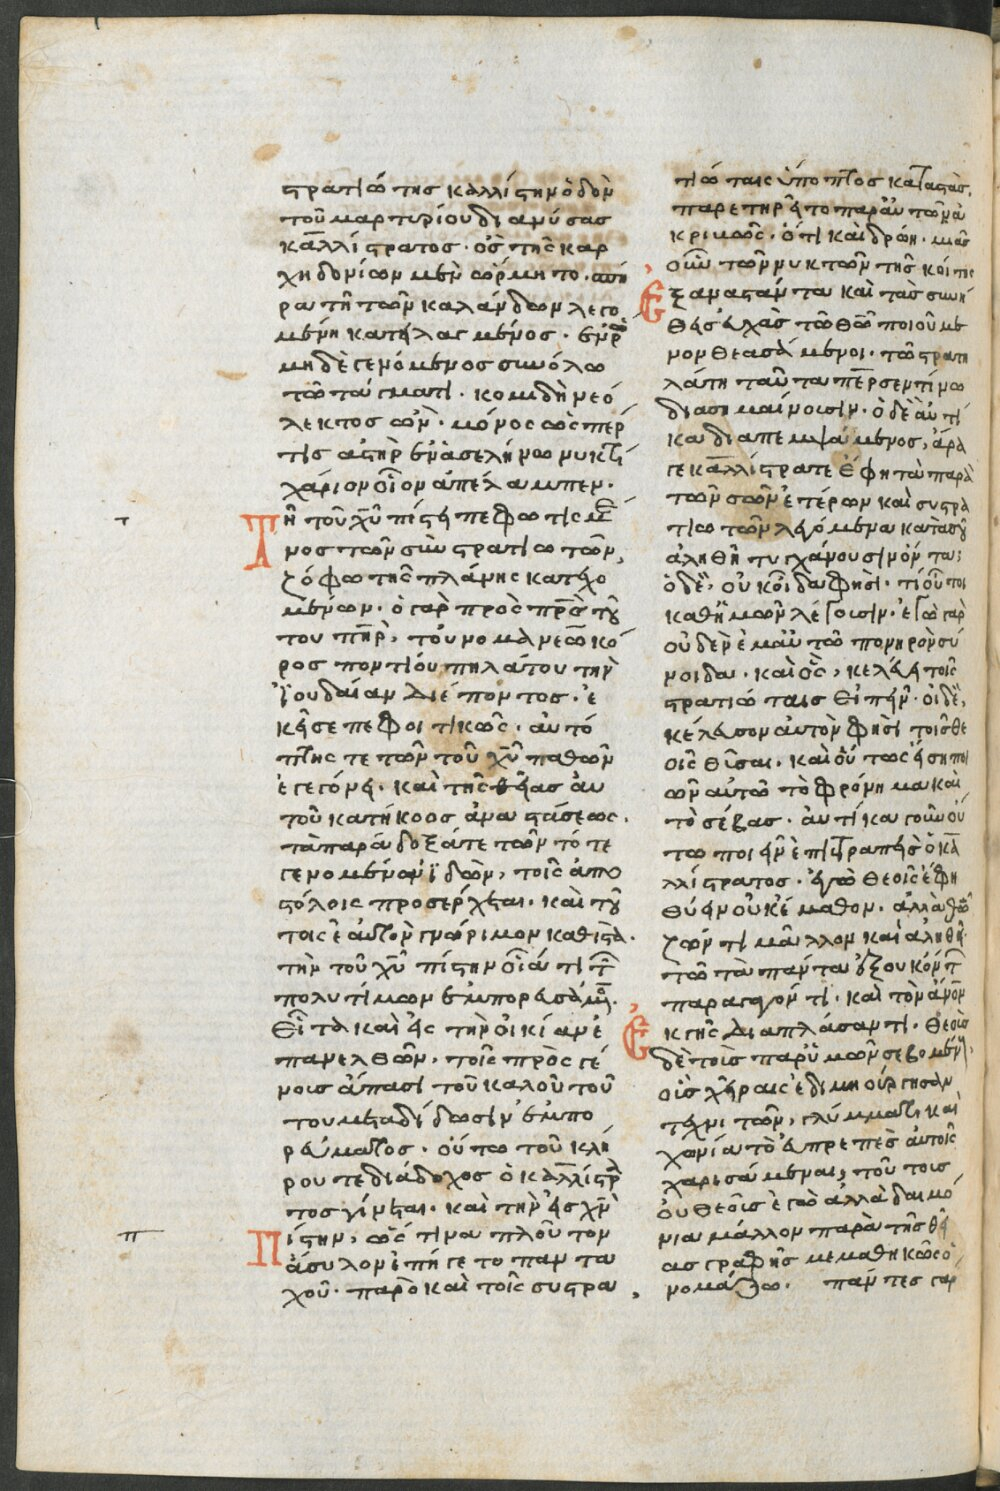 στρατιώτης καλλίστην ὁδὸν
τοῦ μαρτυρίου διανύσας
καλλίστρατος. ὃς τῆς καρ
χηδονίων μὲν ὥρμητο.
ρα τῇ τῶν καλάνδων λεγο
μένη κατειλεγμένος.
μηδὲ γενόμενος συνόλω
τῶ τάγματι. κομιδῆ νεό
λεκτος ὤν. μόνος ὥσπερ
τίς ἀστὴρ ἐν ἀσελήνω νυκτὶ
χάριον οἷον ἀπέλαμπεν.
Τῆ τοῦ χυ πίστει πεφωτισμέ
νος τῶν συστρατιωτῶν
ζόφω τῆς πλάνης κατεχο
μένων. ὁ γὰρ πρὸς πρς τού
του πηρ, τοὔνομα νεωκό
ρος ποντίου πιλάτου τὴν
ἰουδαίαν διέποντος. ἐ
κεῖσε πεφοιτικὼς. αὐτό
πτης τε τῶν τοῦ χυ παθῶν
ἐγεγόνει. καὶ τῆς θείας αὐ
τοῦ κατήκοος ἀναστάσεως.
τὰ παράδοξά τε τῶν τότε
γενομένων ἰδὼν, τοῖς ἀπο
στόλοις προσέρχεται. καὶ τού
τοις ἑαυτὸν γνώριμον καθιστᾶ.
τὴν τοῦ χυ πίστιν οἷά τι τῶν
πολυτίμων ἐμπορευσάμενος.
Εἶτα καὶ εἰς τὴν οἰκίαν ἐ
πανελθὼν. τοῖς πρὸς γέ
νοις ἅπασι τοῦ καλοῦ τού
του μεταδίδωσιν ἐμπο
ρεύματος. οὕτω τοῦ κλή
ρου τε διάδοχος ὁ καλλίστρα
τος γίνεται. καὶ τὴν εἰς χν
Πίστιν, ὥς τινα πλοῦτον
ἄσυλον ἐπήγετο πανταχοῦ
χοῦ. παρὸ καὶ τοῖς συστρα
τιώταις ὕποπτος καταστὰς,
παρετηρεῖτο παρ' αὐτῶν ἀ
κριβῶς. ὅτι καὶ δρώη. μιᾶς
οὖν τῶν νυκτῶν τῆς κοίτης
Ἐξαναστάντα καὶ τὰς συνή
θεις εὐχὰς τῶ θεῶ ποιούμε
νον θεασάμενοι. τῶ στρατη
λάτη ταῦτα περσεντίνω
διασημαίνουσιν. ὁ δὲ αὐτί
κα διαπεμψάμενος, ἆρά
γε καλλίστρατε ἔφη τὰ παρὰ
τῶν σῶν ἑτέρων καὶ συστρα
τιωτῶν λεγόμενα κατὰ σοῦ
ἀληθῆ τυγχάνουσιν ὄντα;
ὁ δὲ, οὐκ οἶδα φησί. τί οὗτοι
καθ' ἡμῶν λέγουσιν. ἐγὼ γὰρ
οὐδὲν ἐμαυτῶ πονηρὸν σύ
νοιδα. καὶ ὃς, κελεύει τοῖς
στρατιώταις εἰπεῖν. οἱ δὲ,
κέλευσον αὐτὸν φησὶ τοῖς θε
οῖς θῦσαι. καὶ οὕτως εἴση ποῖ
ον αὐτῶ τὸ φρόνημα καὶ
τὸ σέβας. αὐτίκα γοῦν οὕ
τω ποιεῖν ἐπιτραπεὶς ὁ κα
λλίστρατος. ἐγὼ θεοῖς ἔφη
θύειν οὐκ ἔμαθον. ἀλλὰ θεῶ
ζῶντι μᾶλλον καὶ ἀληθεῖ.
τῶ τὰ πάντα ἐξ οὐκ ὄντων
παραγαγόντι. καὶ τὸν ἄνον
Ἐκ γῆς διαπλάσαντι. θεοῖς
δὲ τοῖς παρ' ὑμῶν σεβομένοις,
οἷς χεῖρας ἐδημιούργησαν
τεχνιτῶν, γλύμματι, καὶ
χωνία τὸ εὐπρεπὲς αὐτοῖς
χαρισάμεναι, τούτοις
οὐ θεοῖς ἐγὼ ἀλλὰ δαιμό
νια μᾶλλον παρὰ τῆς θεί
ας γραφῆς μεμαθηκὼς ὀ
νομάζω. πάντες γὰρ